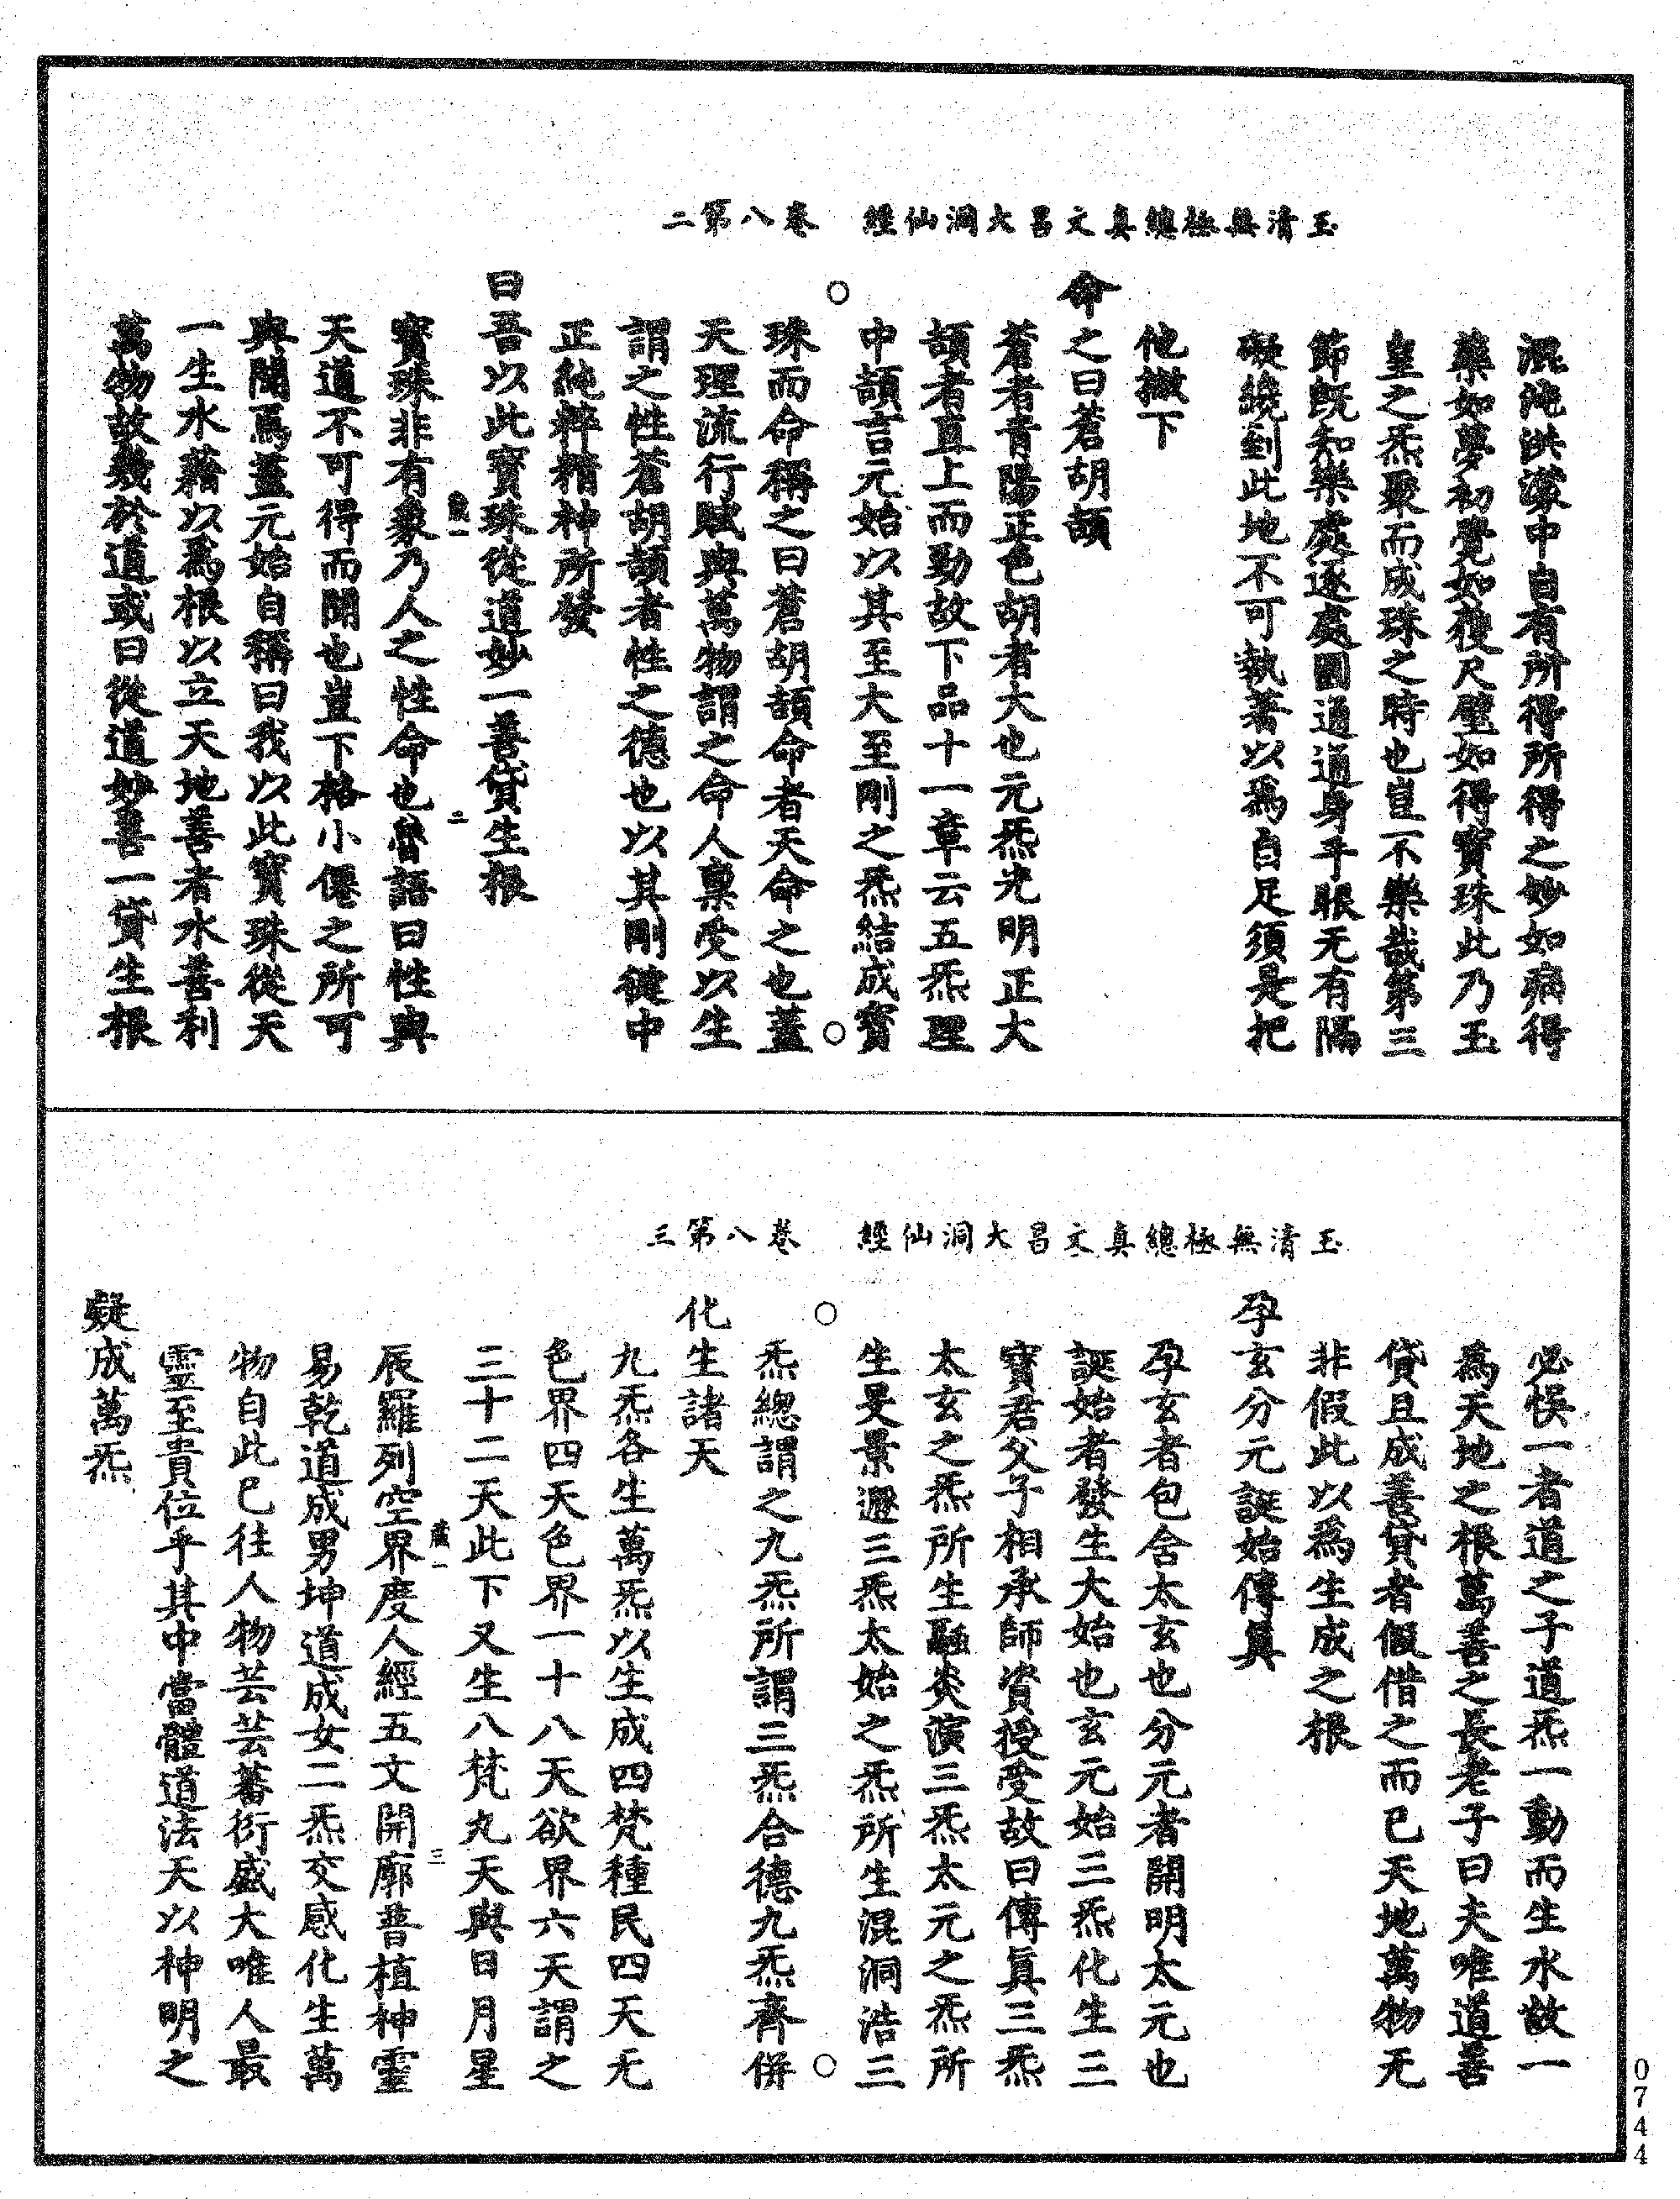 玉清無極總真文昌大洞仙經　卷八第二
混沌洪濛中自有所得所得之妙如病得
藥如夢初覺如獲尺璧如得寶珠此乃玉
皇之炁聚而成珠之時也豈不樂哉第三
節旣知樂處逐處圓通通身手眼无有隔
礙纔到此地不可執著以爲自足須是把
他撇下
命之曰蒼胡頡
蒼者青陽正色胡者大也元炁光明正大
頡者直上而勁故下品十一章云五炁理
中頡言元始以其至大至剛之炁結成寶
珠而命稱之曰蒼胡頡命者天命之也蓋
天理流行賦與萬物謂之命人稟受以生
謂之性蒼胡頡者性之德也以其剛健中
正純粹精神所發
曰吾以此寶珠從道妙一善貸生根
藏一
二
寶珠非有象乃人之性命也魯語曰性與
天道不可得而聞也豈下格小僊之所可
與聞焉蓋元始自稱曰我以此寶珠從天
一生水藉以爲根以立天地善者水善利
萬物故幾於道或曰從道妙善一貸生根
玉清無極總真文昌大洞仙經　卷八第三
必悞一者道之子道炁一動而生水故一
爲天地之根萬善之長老子曰夫唯道善
貸且成善貸者假借之而已天地萬物无
非假此以爲生成之根
孕玄分元誕始傳眞
孕玄者包含太玄也分元者開明太元也
誕始者發生大始也玄元始三炁化生三
寶君父子相承師資授受故曰傳眞三炁
太玄之炁所生融炎演三炁太元之炁所
生旻景遁三炁太始之炁所生混洞浩三
炁總謂之九炁所謂三炁合德九炁齊併
化生諸天
九炁各生萬炁以生成四梵種民四天无
色界四天色界一十八天欲界六天謂之
三十二天此下又生八梵丸天與日月星
藏一
三
辰羅列空界度人經五文開廓普植神靈
易乾道成男坤道成女二炁交感化生萬
物自此已往人物芸芸蕃衍盛大唯人最
靈至貴位乎其中當體道法天以神明之
凝成萬炁
0744